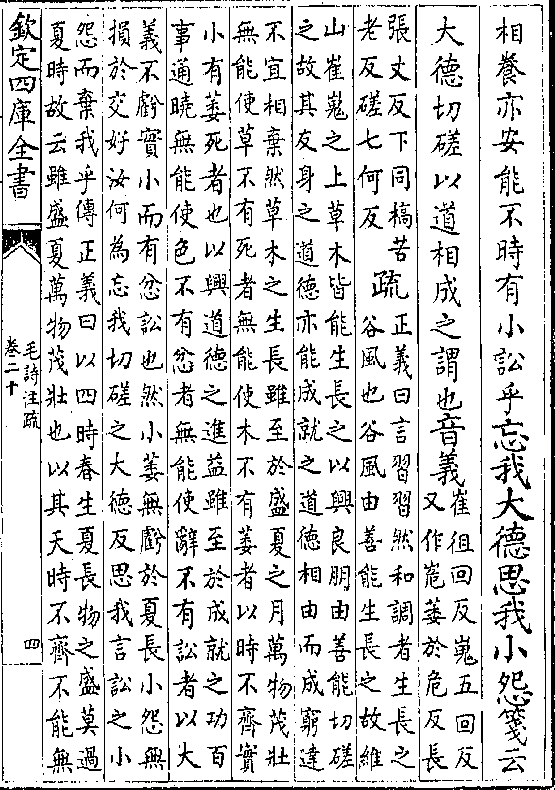 相養亦安能不時有小訟乎忘我大德思我小怨箋云
大德切磋以道相成之謂也音義
崔徂回反嵬五回反
又作嵬萎於危反長
張丈反下同槁苦
老反磋七何反
疏
正義曰言習習然和調者生長之
谷風也谷風由善能生長之故維
山崔嵬之上草木皆能生長之以興良朋由善能切磋
之故其友身之道德亦能成就之道德相由而成窮達
不宜相棄然草木之生長雖至於盛夏之月萬物茂壯
無能使草不有死者無能使木不有萎者以時不齊實
小有萎死者也以興道德之進益雖至於成就之功百
事通曉無能使色不有忿者無能使辭不有訟者以大
義不虧實小而有忿訟也然小萎無虧於夏長小怨無
損於交好汝何為忘我切磋之大德反思我言訟之小
怨而棄我乎傳正義曰以四時春生夏長物之盛莫過
夏時故云雖盛夏萬物茂壯也以其天時不齊不能無
欽定四庫全書
毛詩注疏
卷二十
四